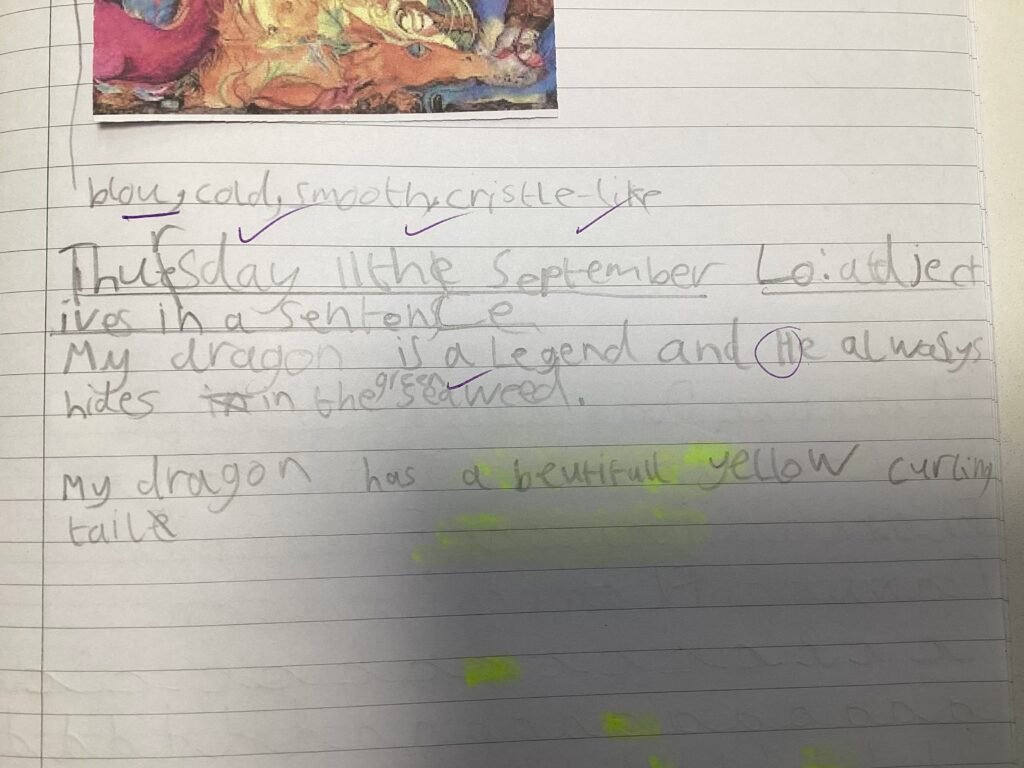 blou, cold, smooth, cristle-like
Thursday 11the September Lo: adject
ives in a sentence
My dragon is a Legend and He always
hides in the green seaweed.
My dragon has a beutifull yellow curling
tail